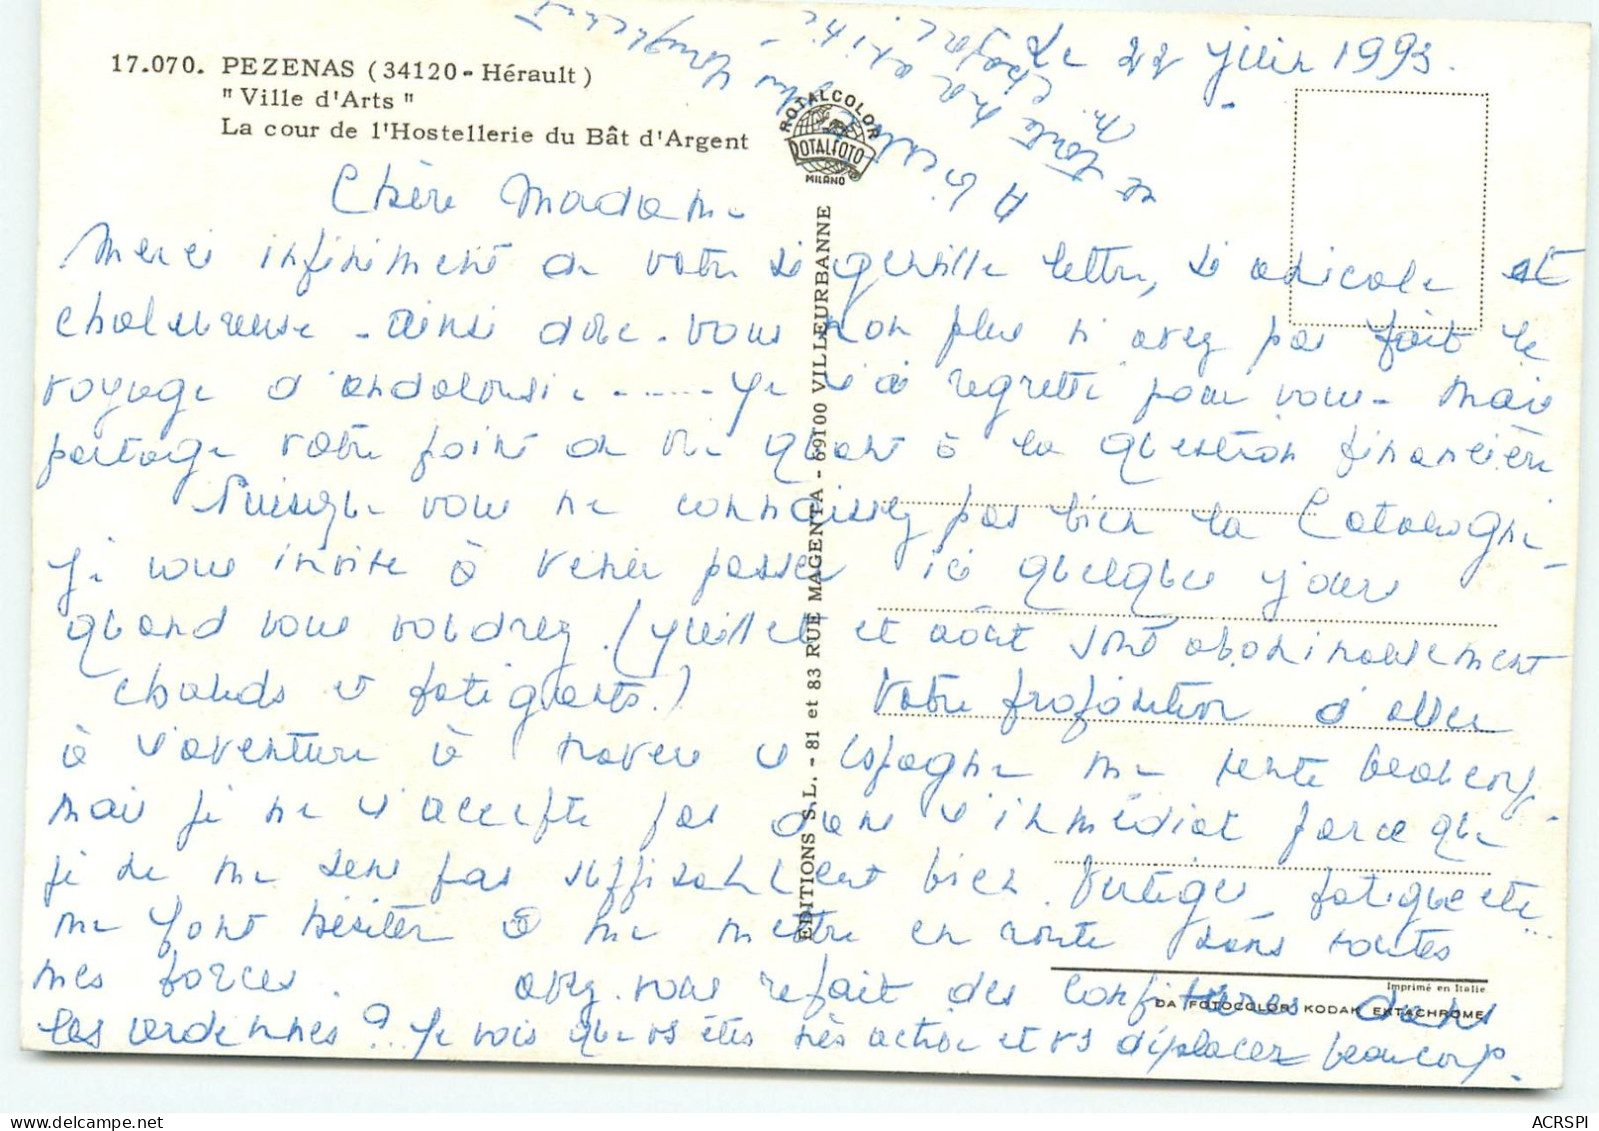 17.070. PEZENAS (34120 - Hérault)
"Ville d'Arts"
La cour de l'Hostellerie du Bât d'Argent
Le 22 juin 1993.
Chère Madame
Merci infiniment de votre si gentille lettre, si amicale et
chaleureuse - ainsi donc - vous non plus n'avez pas fait le
voyage d'andalousie ...... Je l'ai regretté pour vous - Mais
partage votre point de vue quant à la question financière
Puisque vous ne connaissez pas bien la Catalogne,
je vous invite à venir passer ici quelques jours
quand vous voudrez (juillet et août sont abominablement
chauds et fatigants.) Votre proposition d'aller
à l'aventure à travers l'espagne me tente beaucoup,
mais je ne l'accepte pas dans l'immédiat parce que
je ne me sens pas suffisamment bien. Vertiges, fatigue etc...
me font hésiter à me mettre en route sans toutes
mes forces. avez vous refait des confitures dans
les ardennes? Je vois que vs êtes très active et vs déplacez beaucoup.
A bientôt plus longuement
toute mon amitié
ROTALCOLOR
ROTALFOTO
MILANO
EDITIONS S.L. - 81 et 83 RUE MAGENTA - 69100 VILLEURBANNE
Imprimé en Italie
DA FOTOCOLOR KODAK EKTACHROME
ACRSPI